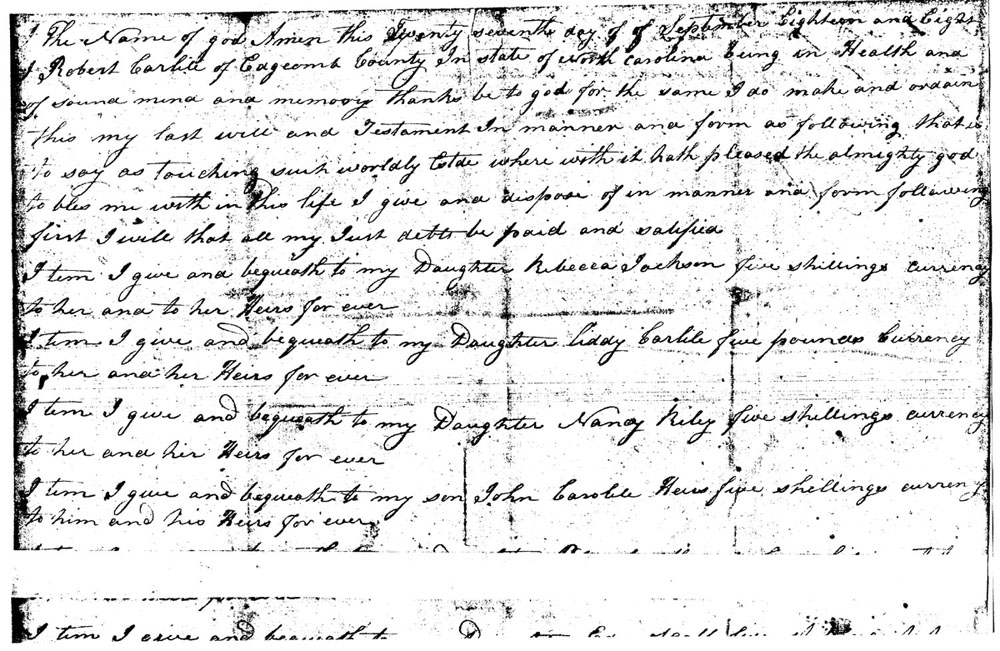 I The Name of god Amen this Twenty seventh day of of September Eighteen and Eight
I Robert Carlile of Edgcomb County In state of North carolina being in Health and
of sound mind and memory thanks be to god for the same I do make and ordain
this my last will and Testament In manner and form as following that is
to say as touching such worldly where with it hath pleased the almighty god
to bles me with in this life I give and dispose of in manner and form following
first I will that all my Just debts be paid and satified
I tem I give and bequeath to my Daughter Rebecca Jackson five shillings currency
to her and to her Heirs for ever
I tem I give and bequeath to my Daughter liddy Carlile five pounds Currency
to her and her Heirs for ever
I tem I give and bequeath to my Daughter Nancy Riley five shillings currency
to her and her Heirs for ever
I tem I give and bequeath to my son John Carlile Heirs five shillings curren
to him and his Heirs for ever
I tem I give and bequeath to